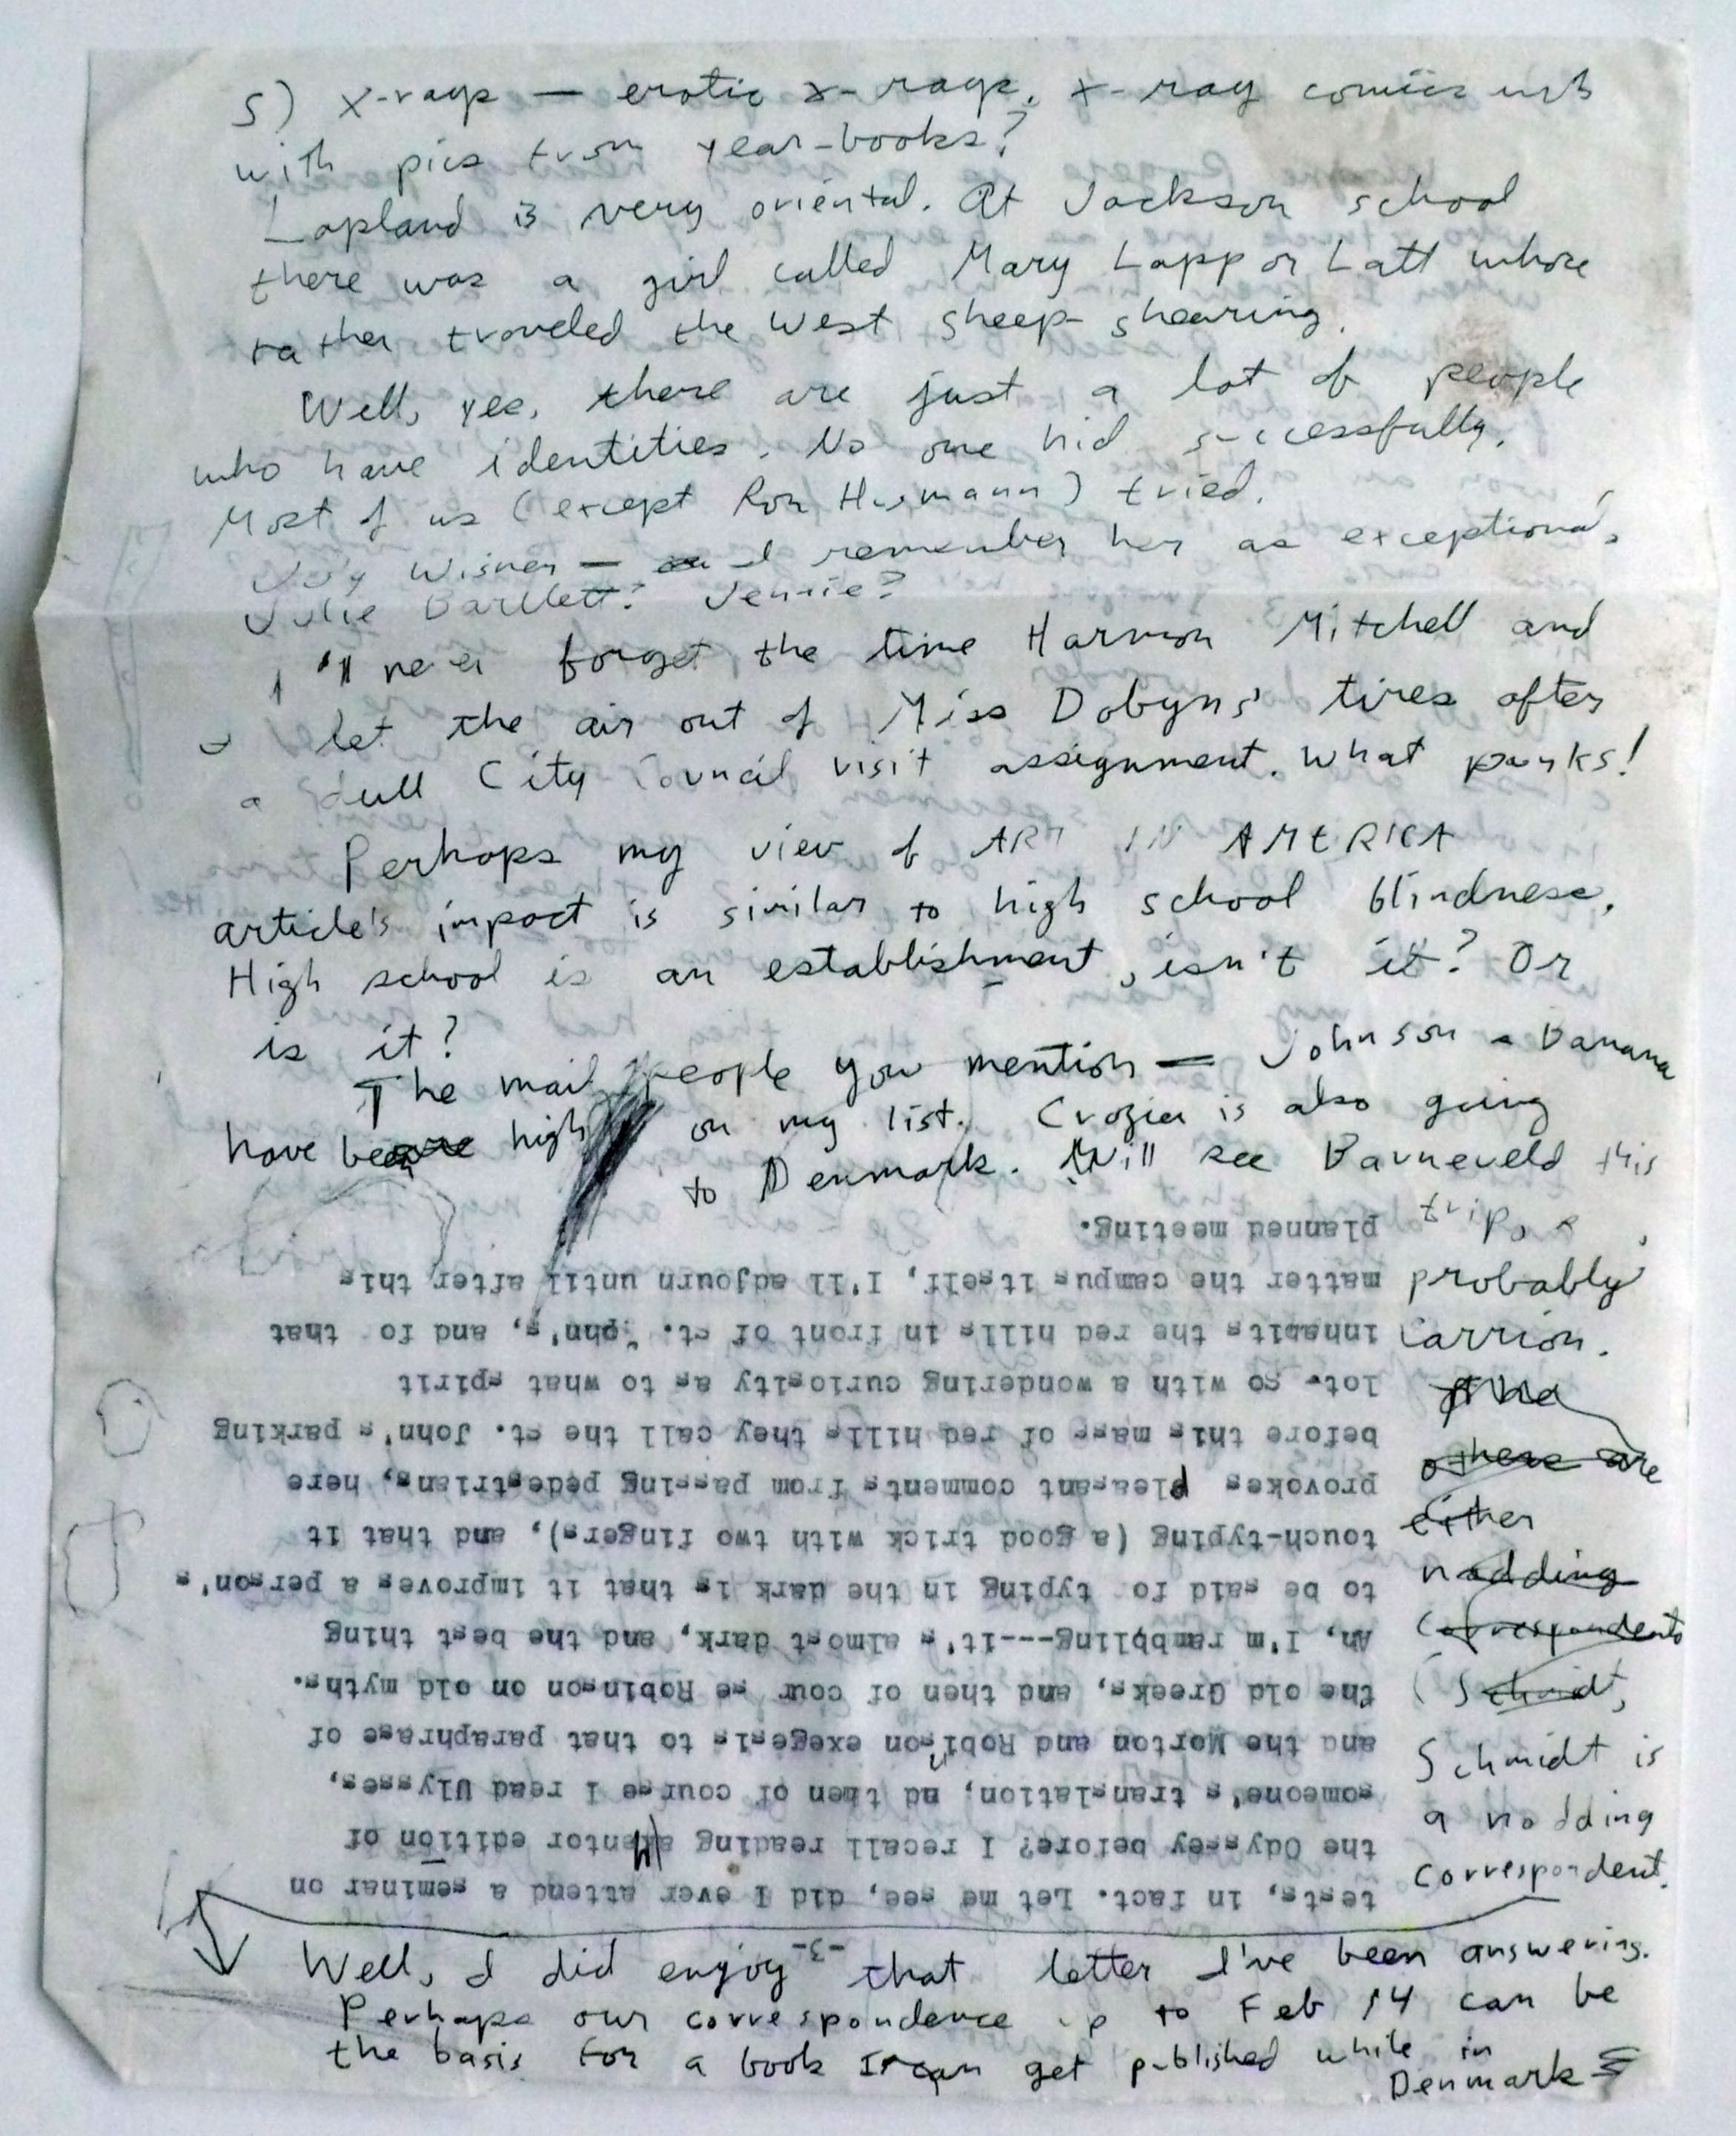 5) X-rays — erotic x-rays, x-ray comics
with pics from year-books?
Lapland is very oriental. At Jackson school
there was a girl called Mary Lapp or Latt whose
father traveled the West sheep-shearing.
Well, yes, there are just a lot of people
who have identities. No one hid successfully.
Most of us (except Ron Humann) tried.
Judy Wisner — I remember her as exceptional,
Julie Bartlett? Jennie?
I'll never forget the time Harmon Mitchell and
I let the air out of Miss Dobyns' tires after
a dull City Council visit assignment. What pranks!
Perhaps my view of ART IN AMERICA
article's impact is similar to high school blindness.
High school is an establishment, isn't it? Or
is it?
The mail people you mention — Johnson & Banana
have been high on my list. Crozier is also going
to Denmark. Will see Barneveld this
trip, &
probably
Carrion.
The
others are
either
nodding
correspondents
(Schmidt,
Schmidt is
a nodding
correspondent.
-3-
tests, in fact. Let me see, did I ever attend a seminar on
the Odyssey before? I recall reading a Mentor edition of
someone's translation, and then of course I read Ulysses,
and the Morton and Robinson exegesis to that paraphrase of
the old Greeks, and then of cour se Robinson on old myths.
Ah, I'm rambbling---it's almost dark, and the best thing
to be said fo typing in the dark is that it improves a person's
touch-typing (a good trick with two fingers), and that it
provokes pleasant comments from passing pedestrians, here
before this mass of red hills they call the st. John's parking
lot. so with a wondering curiosity as to what spirit
inhabits the red hills in front of st. John's, and fo that
matter the campus itself, I'll adjourn until after this
planned meeting.
Well, I did enjoy that letter I've been answering.
Perhaps our correspondence up to Feb 14 can be
the basis for a book I can get published while in
Denmark